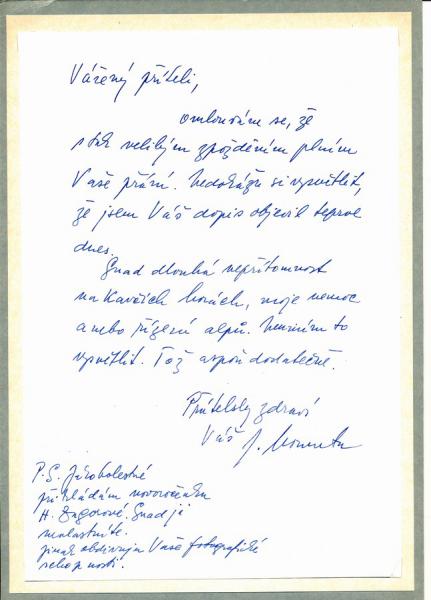 Vážený příteli,
omlouvám se, že
s tak velikým zpožděním plním
Vaše přání. Nedokážu si vysvětlit,
že jsem Váš dopis objevil teprve
dnes.
Snad dlouhá nepřítomnost
na horách, moje nemoc
anebo řízení alpů. Neumím to
vysvětlit. Tož aspoň dodatečně.
Přátelsky zdraví
Váš J.
P.S. Jako bolestné
přikládám novoročenku
H. Zagorové. Snad ji
nevlastníte.
Jinak obdivuji Vaše fotografické
schopnosti.